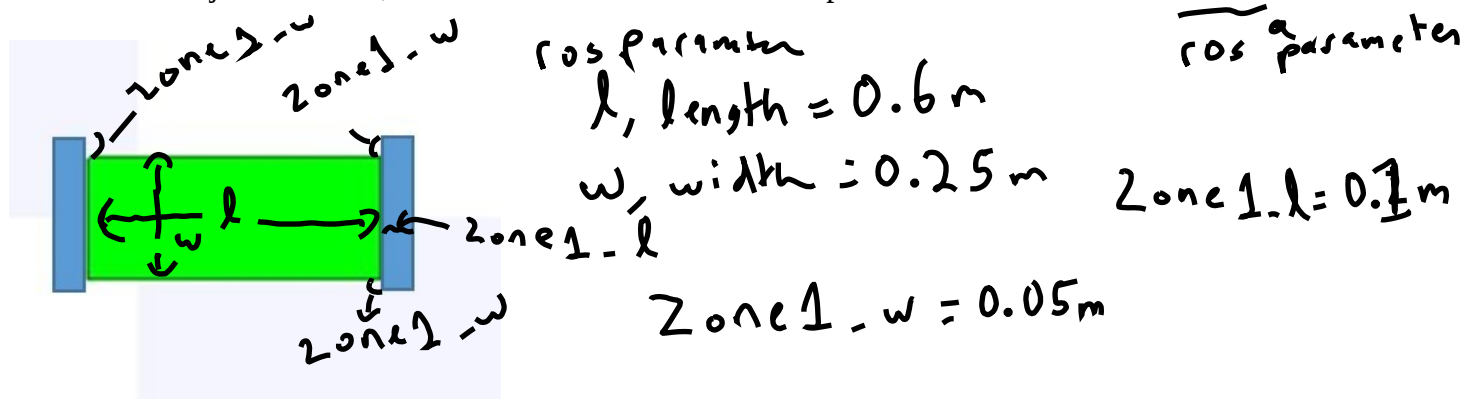 zone1_w
zone1_w
ros parameter
ros a parameter
l, length = 0.6 m
w, width = 0.25 m
zone1_l = 0.1 m
l
w
zone1_l
zone1_w = 0.05 m
zone1_w